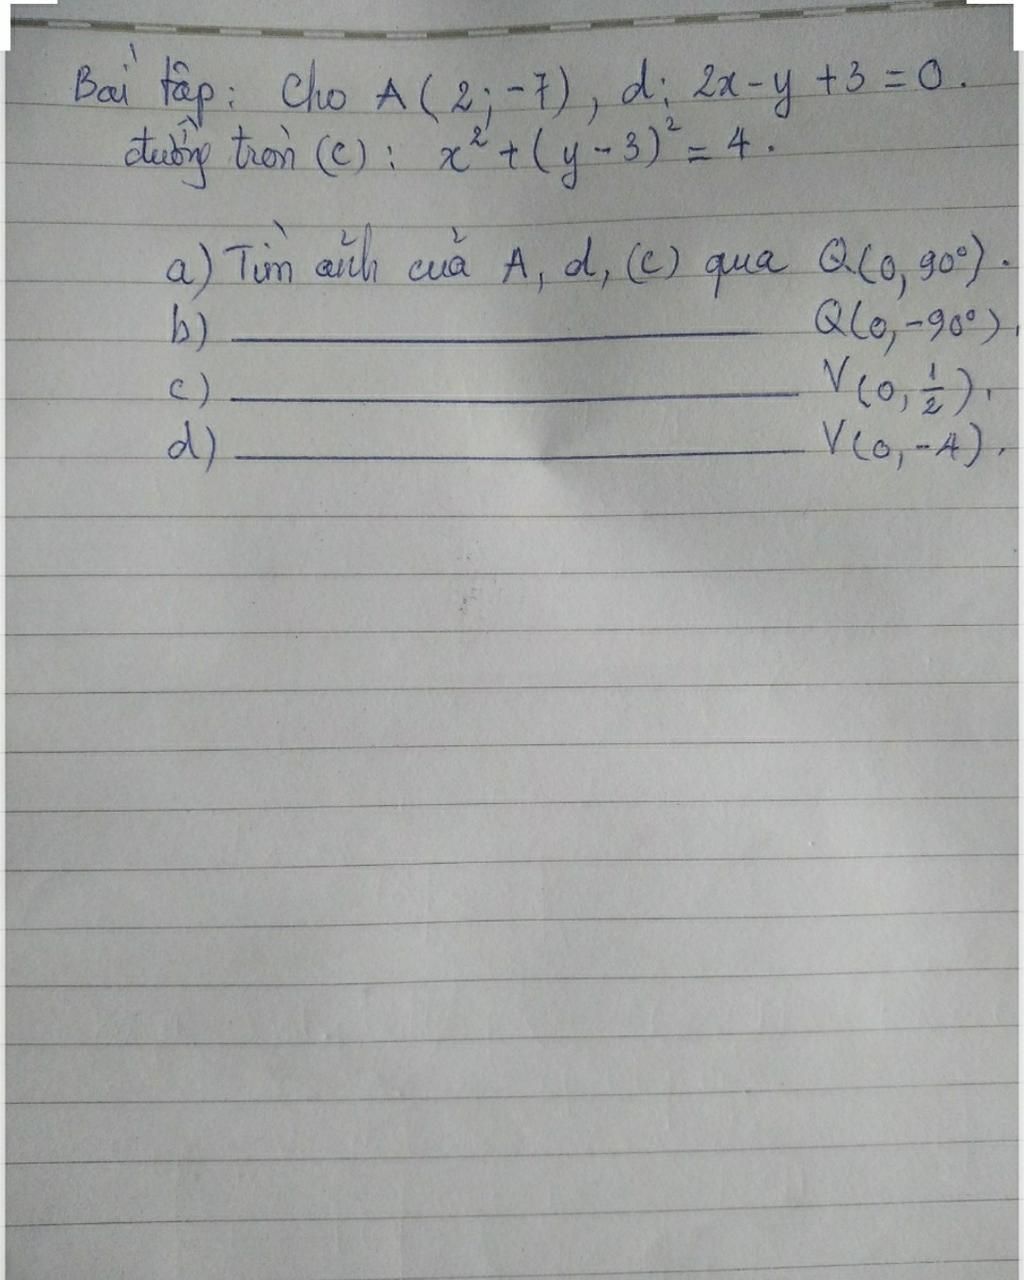 Bài tập: Cho A(2;-7), d: 2x-y+3=0.
đường tròn (C): x²+(y-3)²=4.
a) Tìm ảnh của A, d, (C) qua Q(0, 90°).
b) ____________ Q(0,-90°).
c) ____________ V(0, 1/2).
d) ____________ V(0,-4).